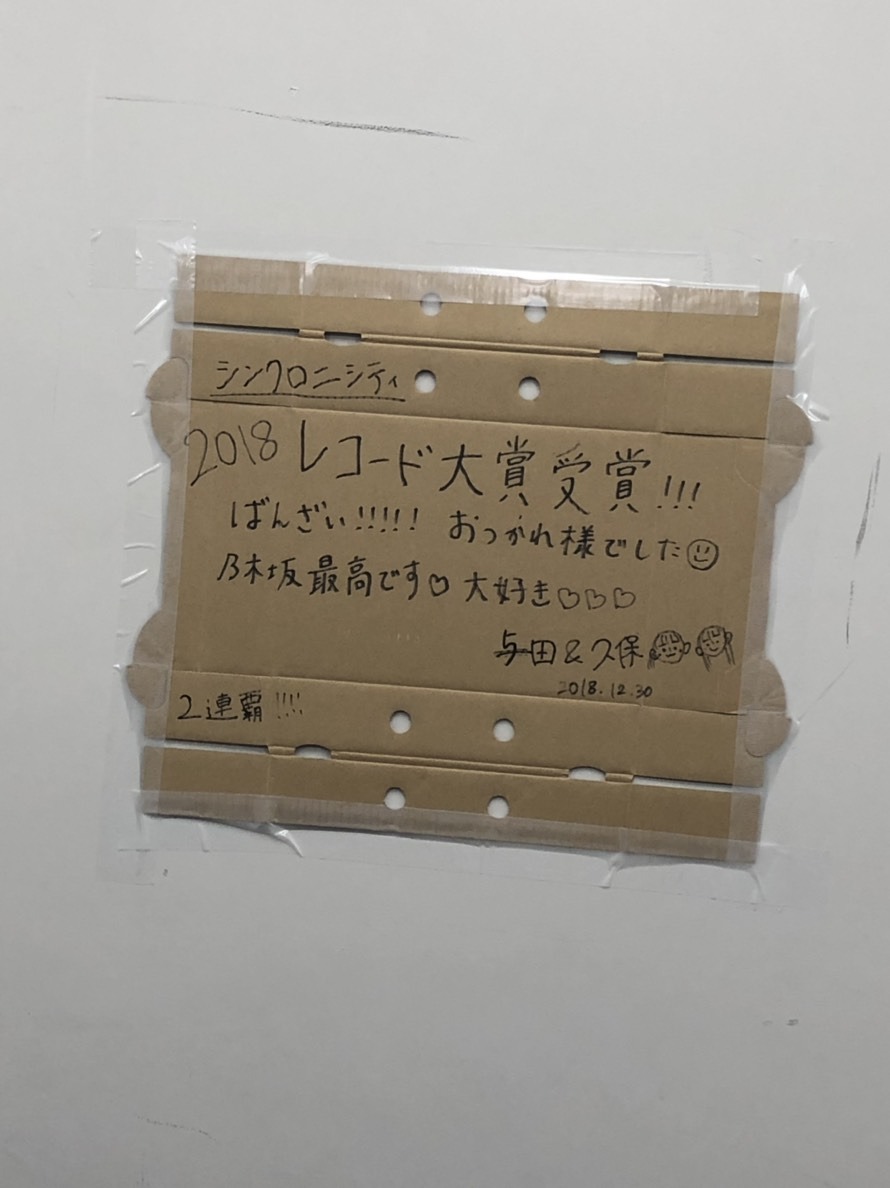 シンクロニシティ
2018 レコード大賞受賞!!!
ばんざい!!!!! おつかれ様でした☺
乃木坂最高です♡ 大好き♡♡♡
与田&久保
2018.12.30
2連覇!!!!